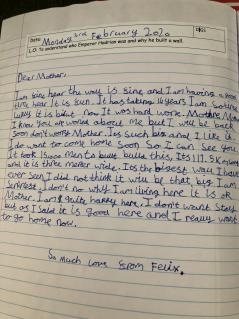 Date: Monday 3rd February 2020
L.O. To understand who Emperor Hadrian was and why he built a wall.
Dear Mother,
I am here the way is fine and I am having a
time hear it is fun. It has taking 14 years I am so
it is bilut now It was hard work. Mother
I know you are worried about me but I will be back
soon don't worry Mother. Its such big and I like it.
I do want to come home soon So I can see you
it took three men to build this, Its 117.5 K
and it is three meter wide. Its the biggest way I have
ever seen I did not think it will be that big I am
I don't no why I am living here it is ok
Mother. I am quite happy here, I don't want stay
but as I said it is good here and I really want
to go home now.
So Much Love from Felix.